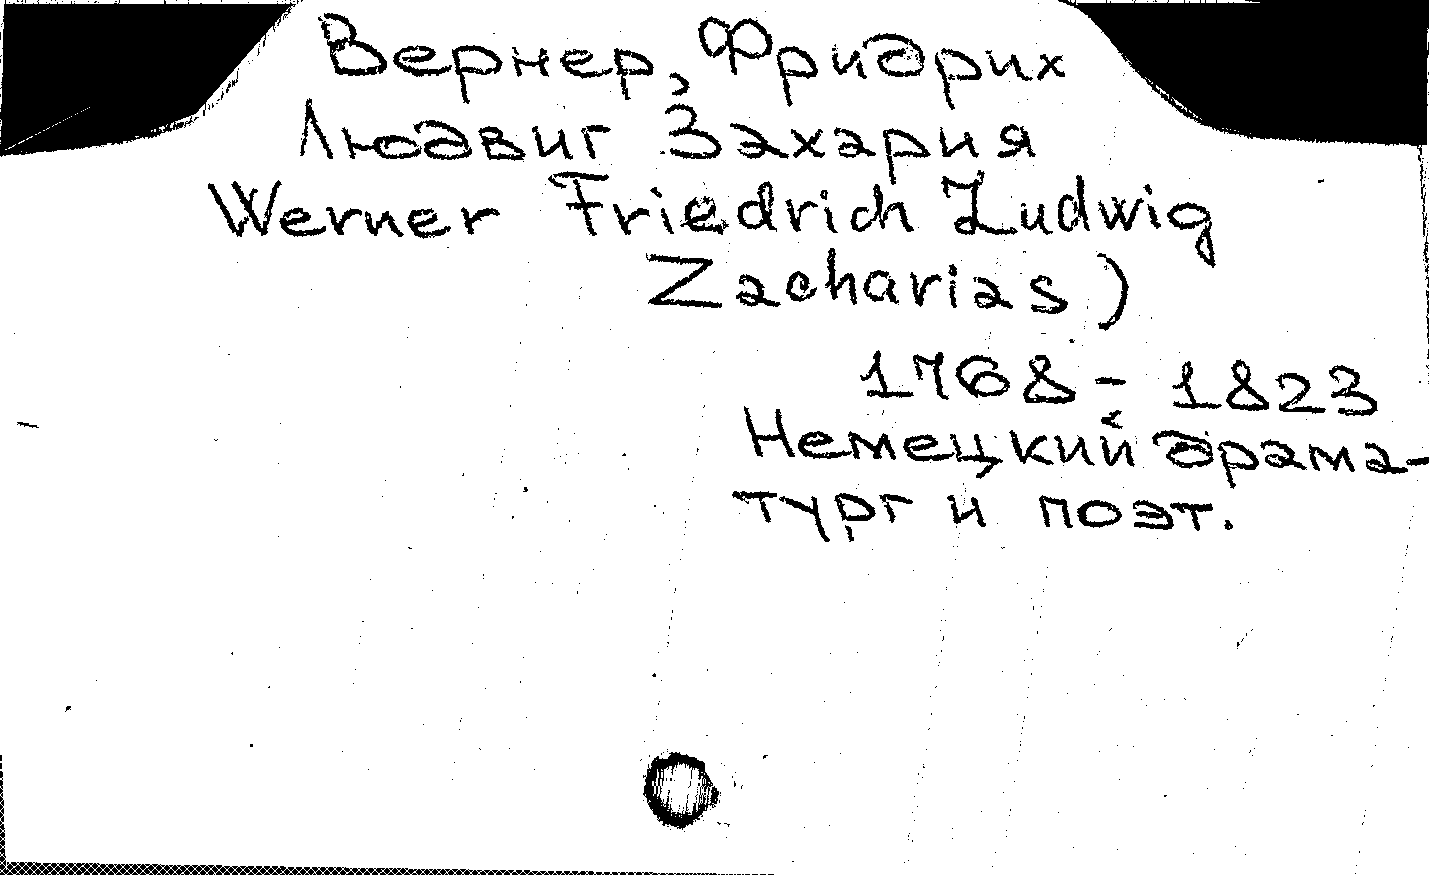 Вернер, Фридрих
Людвиг Захария
Werner Friedrich Ludwig
Zacharias)
1768 - 1823
Немецкий драма-
тург и поэт.